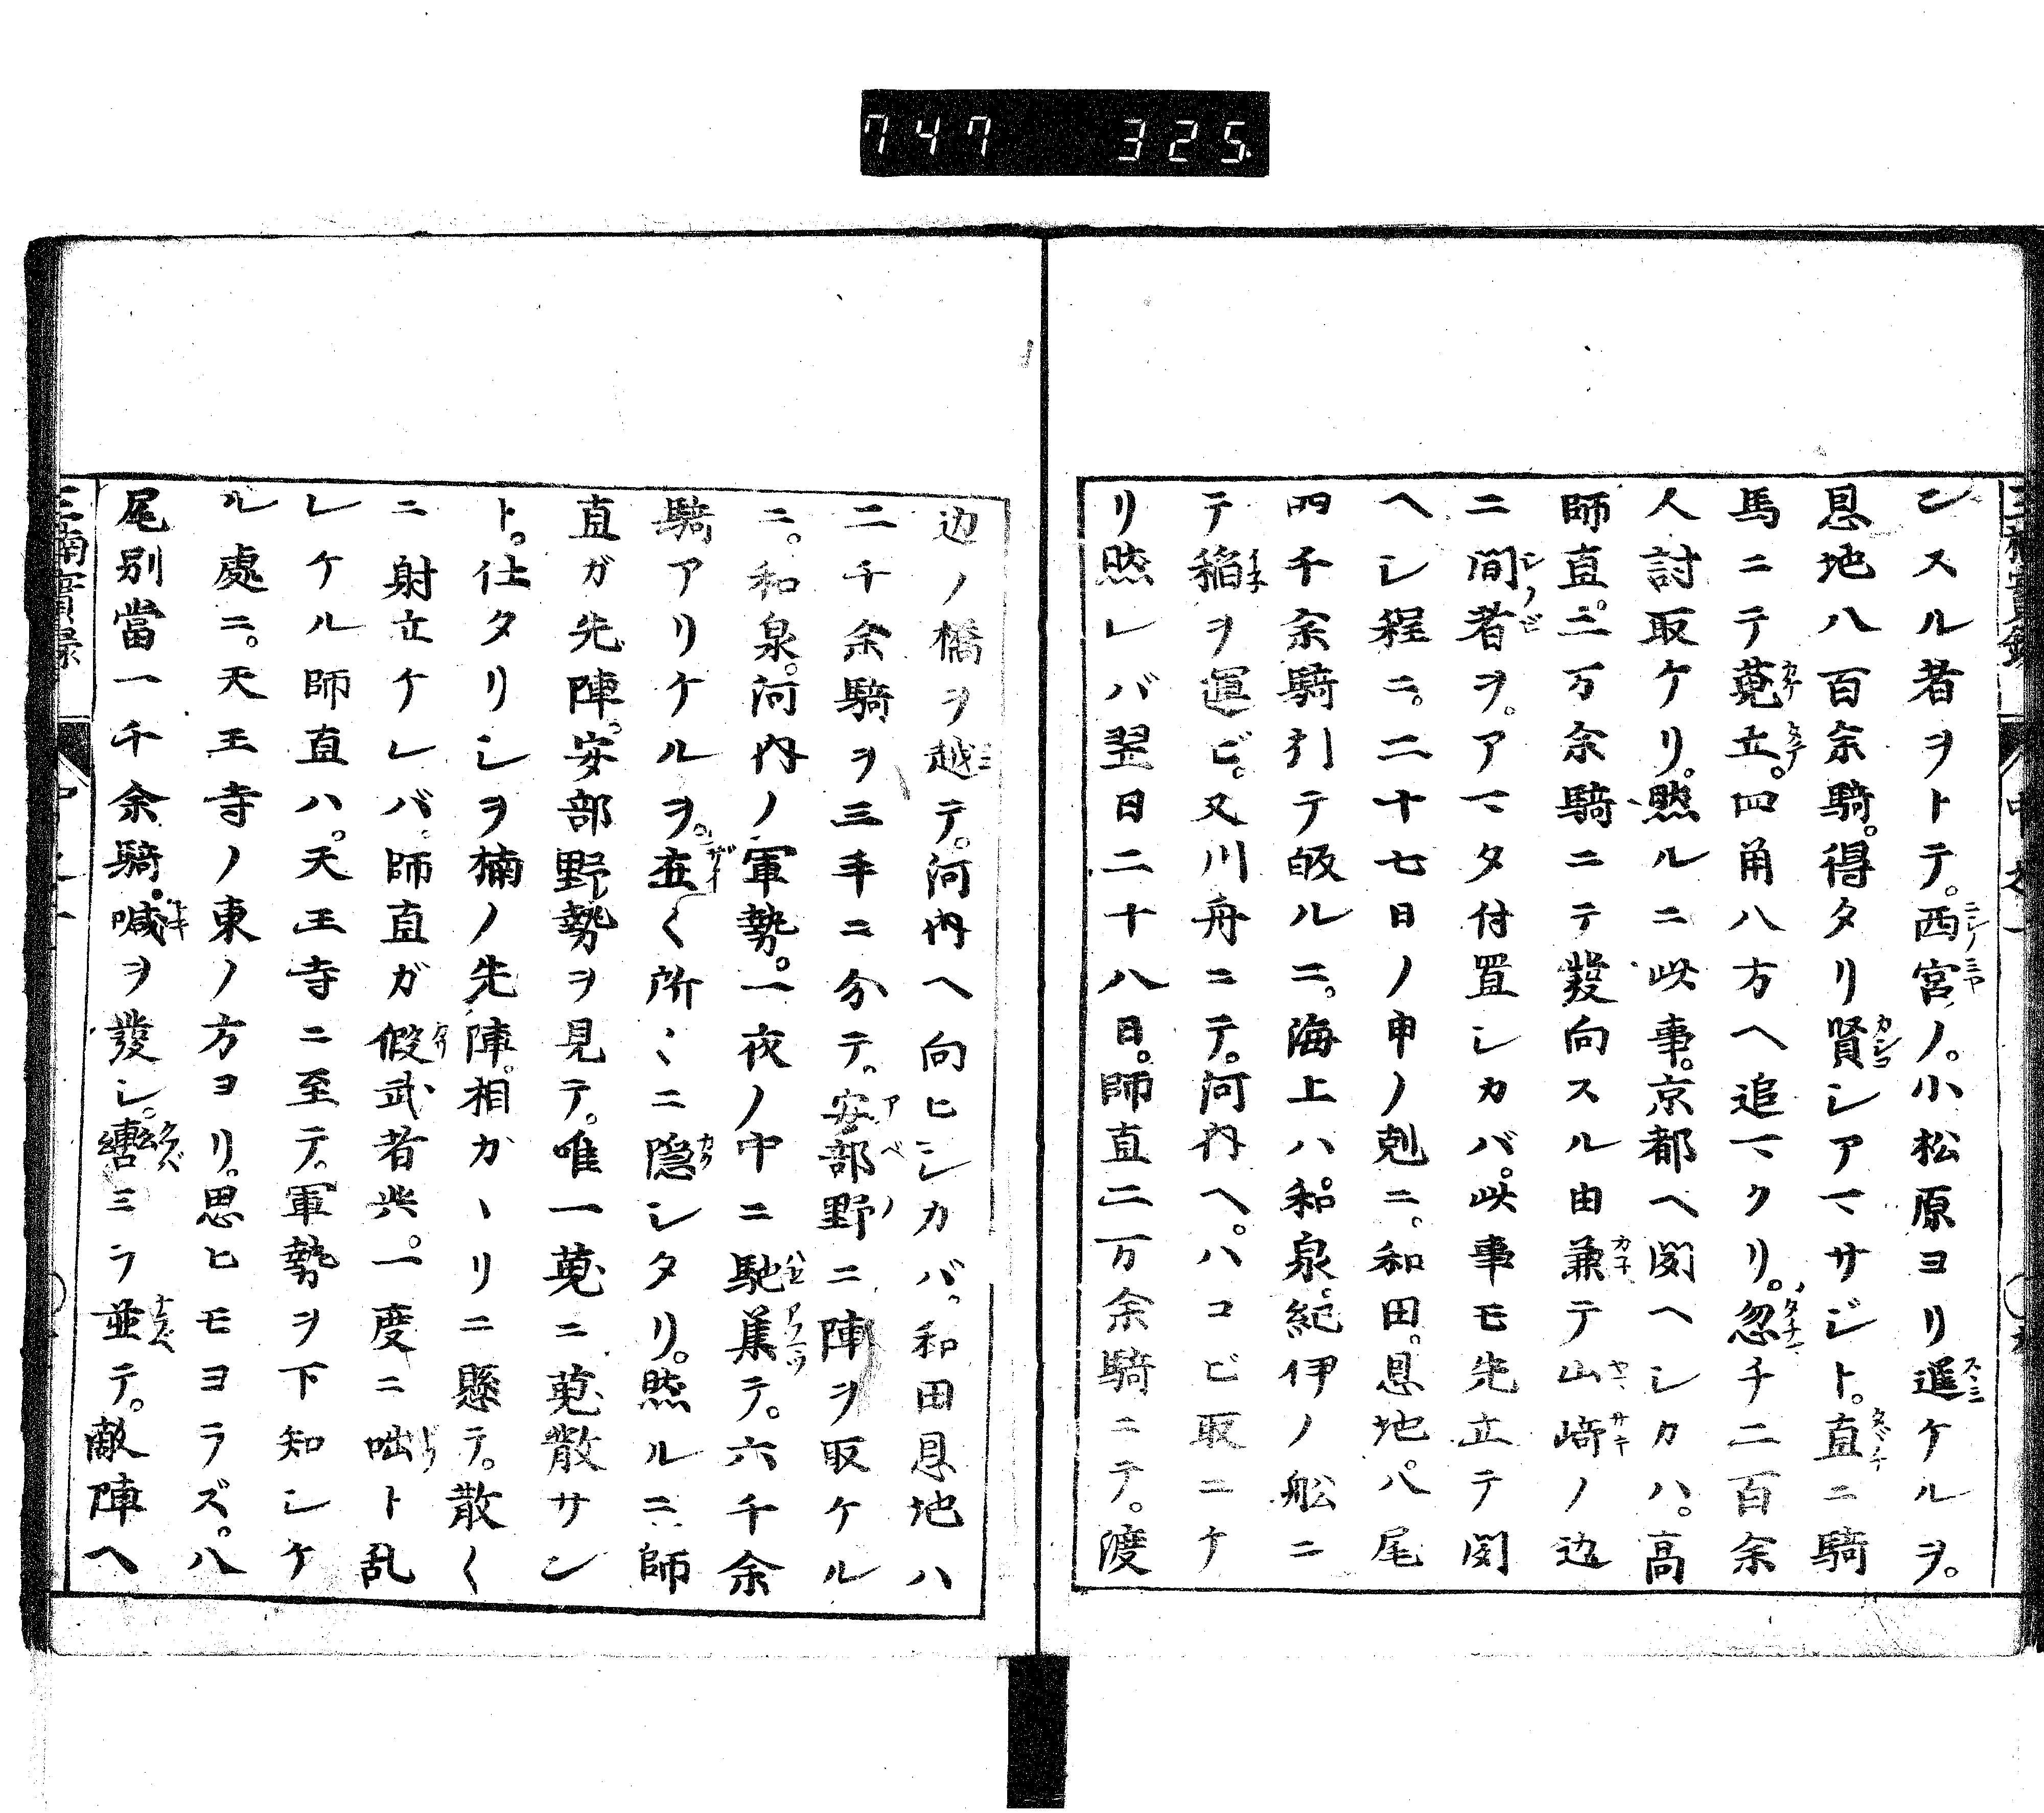 747 325
ンスル者ヲトテ。西宮ノ。小松原ヨリ進ケルヲ。
恩地八百余騎。得タリ賢シアマサジト。直ニ騎
馬ニテ蒐立。四角八方ヘ追マクリ。忽チ二百余
人討取ケリ。然ルニ此事。京都ヘ聞ヘシカハ。高
師直。二万余騎ニテ發向スル由兼テ山崎ノ辺
ニ間者ヲ。アマタ付置シカバ。此事モ先立テ聞
ヘシ程ニ。二十七日ノ申ノ剋ニ。和田。恩地。八尾
四千余騎引テ皈ルニ。海上ハ。和泉。紀伊ノ舩ニ
テ稲ヲ運ビ。又川舟ニテ。河内ヘ。ハコビ取ニケ
リ然レバ翌日二十八日。師直二万余騎ニテ。渡
辺ノ橋ヲ越テ。河内ヘ向ヒシカバ。和田恩地ハ
二千余騎ヲ三手ニ分テ。安部野ニ陣ヲ取ケル
ニ。和泉。河内ノ軍勢。一夜ノ中ニ馳集テ。六千余
騎アリケルヲ。在〱所〻ニ隠シタリ。然ルニ師
直ガ先陣。安部野勢ヲ見テ。唯一蒐ニ蒐散サン
ト。仕タリシヲ楠ノ先陣。相カヽリニ懸テ。散〱
ニ射立ケレバ。師直ガ假武者共。一度ニ咄ト乱
レケル師直ハ。天王寺ニ至テ。軍勢ヲ下知シケ
ル處ニ。天王寺ノ東ノ方ヨリ。思ヒモヨラズ。八
尾別當一千余騎。喊ヲ發シ。轡ミラ並テ。敵陣ヘ
三楠實録